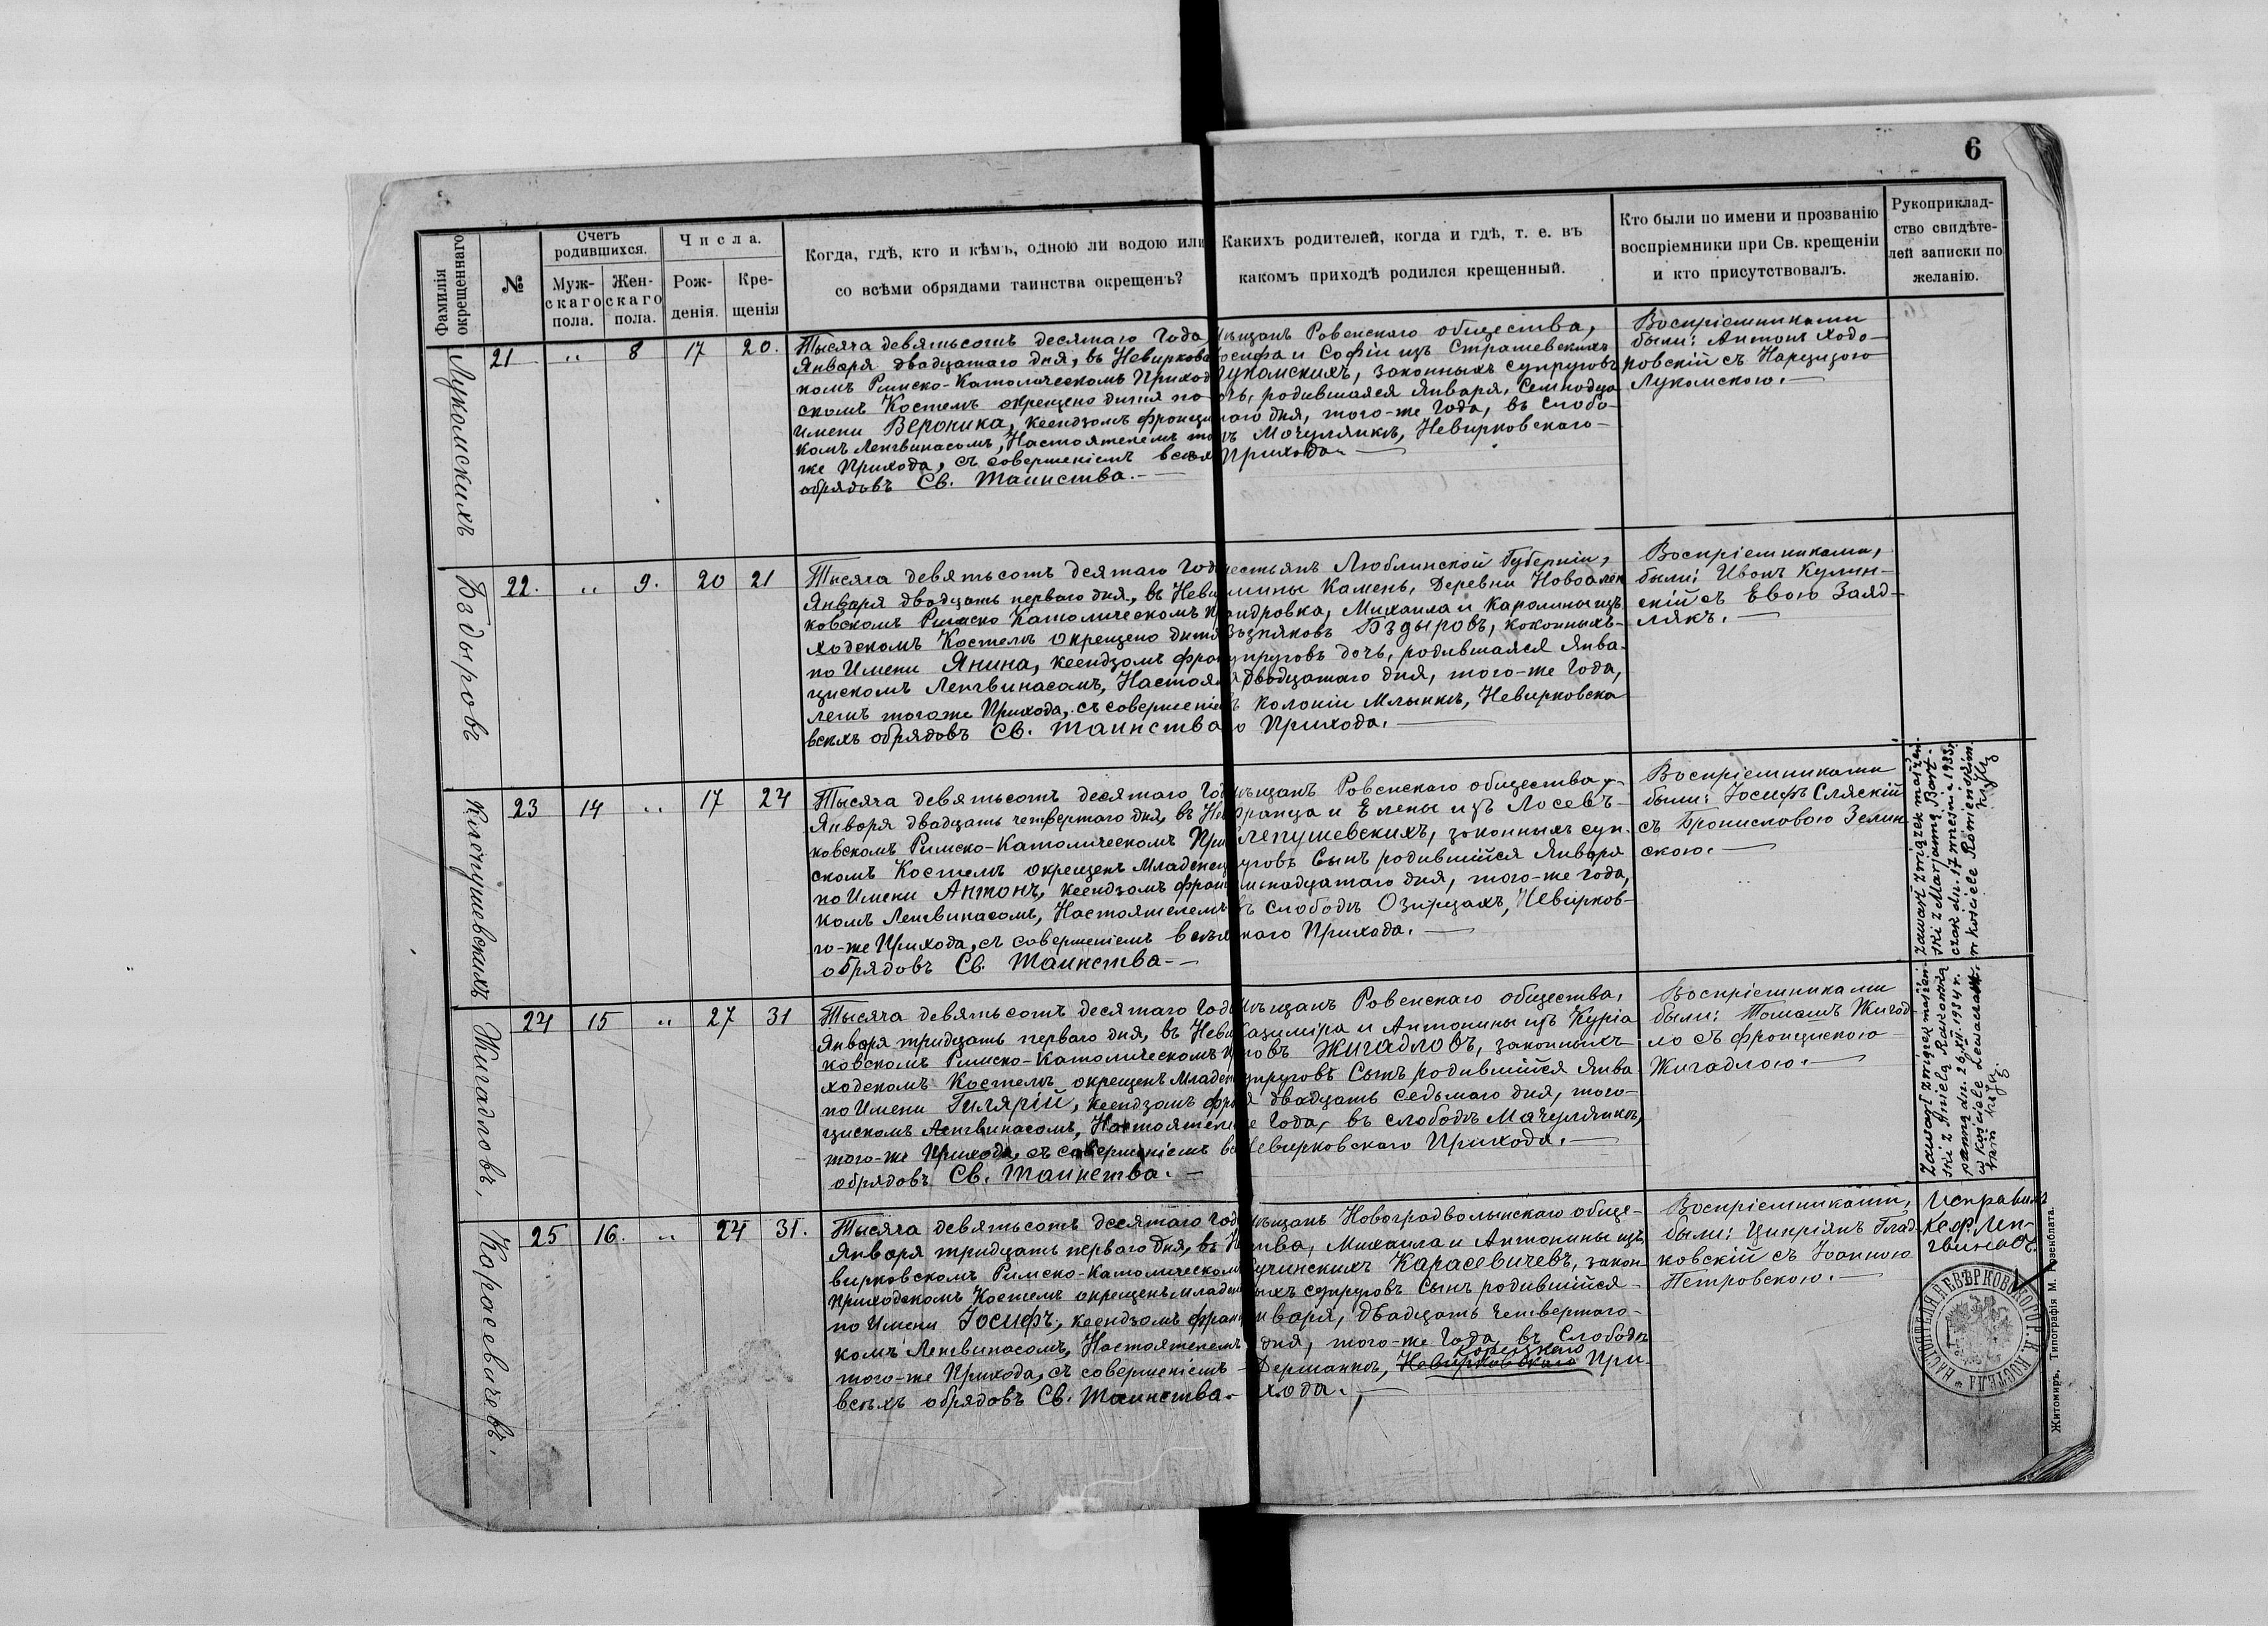 6
Фамилія
окрещеннаго
№
Счетъ
родившихся.
Муж-
скаго
пола.
Жен-
скаго
пола.
Числа.
Рож-
денія.
Кре-
щенія
Когда, гдѣ, кто и кѣмъ, одною ли водою или
со всѣми обрядами таинства окрещенъ?
Какихъ родителей, когда и гдѣ, т. е. въ
какомъ приходѣ родился крещенный.
Кто были по имени и прозванію
воспріемники при Св. крещеніи
и кто присутствовалъ.
Рукоприклад-
ство свидѣте-
лей записки по
желанію.
Лукомскихъ
21 „ 8 17 20.
Тысяча девятьсотъ десятаго Года
Января двадцатаго дня, въ Невирковс
комъ Римско-Католическомъ Приход
скомъ Костелѣ окрещено дитя по
имени Вероника, ксендзомъ Францис
комъ Ленгвинасомъ, Настоятелемъ то
же Прихода, съ совершеніемъ всѣх
обрядовъ Св. Таинства.—
ѣщанъ Ровенскаго общества,
осифа и Софіи изъ Страшевскихъ
укомскихъ, законныхъ супруговъ
чь, родившаяся Января, Семнадца
таго дня, того-же Года, въ слобо-
дѣ Мочулянкѣ, Невирковскаго-
Прихода.—
Воспріемниками
были: Антонъ Ходо-
ровскій съ Нарцизою
Лукомскою.—
Бздыровъ
22. „ 9. 20 21
Тысяча девятьсотъ десятаго Год
Января двадцать перваго дня, въ Неви
ковскомъ Римско Католическомъ П
ходскомъ Костелѣ окрещено дитя
по Имени Янина, ксендзомъ Фран
цискомъ Ленгвинасомъ, Настоя
лемъ тогоже Прихода, съ совершеніе
всѣхъ обрядовъ Св. Таинства
естьянъ Люблинской Губерніи,
мины Камень, Деревни Новоалек
андровка, Михаила и Каролины изъ
Возняковъ Бздыровъ, законныхъ-
упруговъ дочь, родившаяся Янва-
я двадцатаго дня, того-же Года,
ъ колоніи Млынкѣ, Невирковска
о Прихода.—
Воспріемниками,
были: Иванъ Кулин-
скій съ Евою Заяд-
лякъ.—
Клепушевскихъ
23 14 „ 17 24
Тысяча девятьсотъ десятаго Год
Января двадцать четвертаго дня, въ Не
ковскомъ Римско-Католическомъ При
скомъ Костелѣ окрещенъ Младенец
по Имени Антонъ, ксендзомъ Франц
комъ Ленгвинасомъ, Настоятелемъ
го-же Прихода, съ совершеніемъ всѣх
обрядовъ Св. Таинства—
ѣщанъ Ровенскаго общества,-
ранца и Елены изъ Лосевъ-
лепушевскихъ, законныхъ суп-
уговъ Сынъ родившійся Января
мнадцатаго дня, того-же года,
въ слободѣ Озирцахъ, Невирков-
каго Прихода.—
Воспріемниками
были: Іосифъ Сляскій
съ Брониславою Зелин-
скою.—
Zawarł związek małżeń-
ski z Marjanną Bart-
czak dn. 17 września 1933 r.
w kościele Rówieńskim.
Жигадловъ,
24 15 „ 27 31
Тысяча девятьсотъ десятаго Год
Января тридцать перваго дня, въ Неви
ковскомъ Римско-Католическомъ П
ходскомъ Костелѣ окрещенъ Младен
по Имени Гиляріи, ксендзомъ Фра
цискомъ Ленгвинасомъ, Настоятел
того-же Прихода, съ совершеніемъ вс
обрядовъ Св. Таинства.—
ѣщанъ Ровенскаго общества,
Казиміра и Антонины изъ Куріа
новъ Жигадловъ, законныхъ
упруговъ Сынъ родившійся Янва
я двадцать седьмаго дня, того-
е Года, въ слободѣ Мачулянкѣ,
Невирковскаго Прихода.—
Воспріемниками
были: Томашъ Жигад-
ло съ Францискою
Жигадлою.—
Zawarł związek małżeń-
ski z Anielą Rakowską
panną dn. 26.VII.1934 r.
w kościele
Карасевичевъ.
25 16. „ 24 31.
Тысяча девятьсотъ десятаго Год
Января тридцать перваго дня, въ Н
вирковскомъ Римско-Католическом
Приходскомъ Костелѣ окрещенъ Младен
по Имени Іосифъ, ксендзомъ Фран
комъ Ленгвинасомъ, Настоятелемъ
того-же Прихода, съ совершеніемъ
всѣхъ обрядовъ Св. Таинства.
ѣщанъ Новоградволынскаго обще-
тва, Михаила и Антонины изъ
учинскихъ Карасевичевъ, закон
ыхъ супруговъ Сынъ родившійся
нваря, двадцать четвертаго-
дня, того-же Года, въ Слободѣ
Корецкаго
Дерманкѣ, Невирковскаго При-
хода.—
Воспріемниками,
были: Ципріянъ Глад-
ковскій съ Іоанною
Петровскою.—
Исправилъ
Кс. Ф. Лен-
гвинасъ.
НАСТОЯТЕЛЯ НЕВѢРКОВСКОГО Р. К. КОСТЕЛА
Житомиръ. Типографія М. Розенблата.